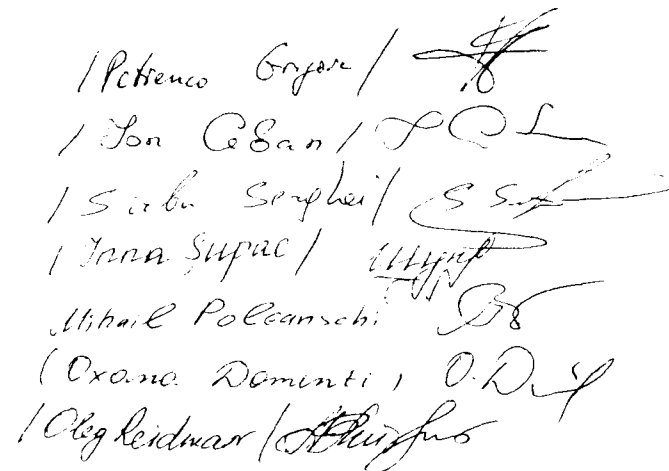 / Petrenco Grigore /
/ Ion Ceban /
/ Sirbu Serghei /
/ Inna Șupac /
Mihail Poleanschi
(Oxana Domenti)
/ Oleg Reidman /